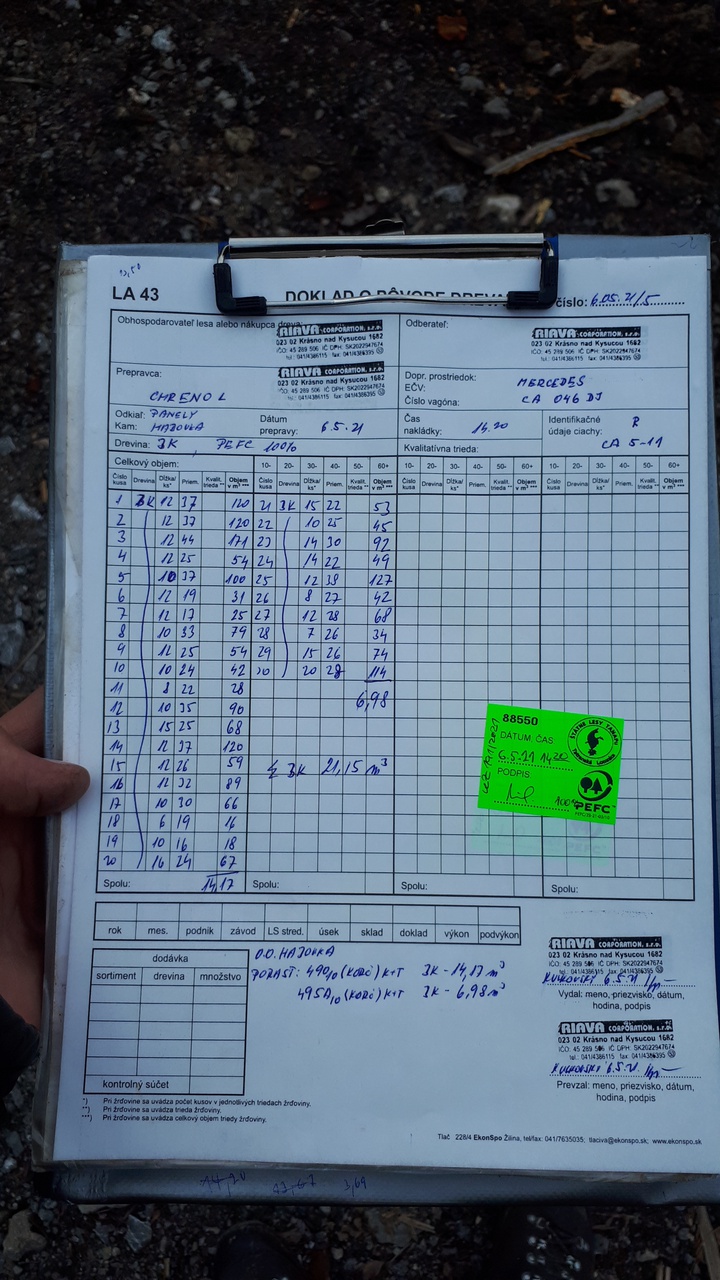 LA 43
DOKLAD O PÔVODE DREVA
číslo: 6.05.21/5
Obhospodarovateľ lesa alebo nákupca dreva:
RIAVA CORPORATION, s.r.o.
023 02 Krásno nad Kysucou 1682
IČO: 45 289 506 IČ DPH: SK2022947674
tel.: 041/4386115 fax: 041/4386395
Odberateľ:
RIAVA CORPORATION, s.r.o.
023 02 Krásno nad Kysucou 1682
IČO: 45 289 506 IČ DPH: SK2022947674
tel.: 041/4386115 fax: 041/4386395
Prepravca:
CHRENO L
RIAVA CORPORATION, s.r.o.
023 02 Krásno nad Kysucou 1682
IČO: 45 289 506 IČ DPH: SK2022947674
tel.: 041/4386115 fax: 041/4386395
Dopr. prostriedok: MERCEDES
EČV:
Číslo vagóna: CA 046 DJ
Odkiaľ: PANELY
Kam: HAJOVKA
Dátum prepravy: 6.5.21
Čas nakládky: 14.20
Identifikačné údaje ciachy: R
CA 5-11
Drevina: BK PEFC 100%
Kvalitatívna trieda:
Celkový objem: 10- 20- 30- 40- 60+ 10- 20- 30- 40- 60+ 10- 20- 30- 40- 60+
Číslo kusa Drevina Dĺžka/ks* Priem. Kvalit. trieda ** Objem v m³ ***
1 BK 12 37 120 21 BK 15 22 53
2 12 37 120 22 10 25 45
3 12 44 171 23 14 30 92
4 12 25 54 24 14 22 49
5 10 37 100 25 12 38 127
6 12 19 31 26 8 27 42
7 12 17 25 27 12 28 68
8 10 33 79 28 7 26 34
9 12 25 54 29 15 26 74
10 10 24 42 30 20 28 114
11 8 22 28
6,98
12 10 35 90
13 15 25 68
14 12 37 120
15 12 26 59
Σ BK 21,15 m³
16 12 32 89
17 10 30 66
18 6 19 16
19 10 16 18
20 16 24 67
Spolu: 14,17 Spolu: Spolu: Spolu:
88550
DÁTUM, ČAS
6.5.21 14.20
PODPIS
100%
PEFC
ŠTÁTNE LESY TANAPU
rok mes. podnik závod LS stred. úsek sklad doklad výkon podvýkon
dodávka
sortiment drevina množstvo
kontrolný súčet
O.O. HAJOVKA
PORAST: 490 10 (KORČ) K+T BK - 14,17 m³
495A10 (KORČ) K+T BK - 6,98 m³
RIAVA CORPORATION, s.r.o.
023 02 Krásno nad Kysucou 1682
IČO: 45 289 506 IČ DPH: SK2022947674
tel.: 041/4386115 fax: 041/4386395
6.5.21
Vydal: meno, priezvisko, dátum,
hodina, podpis
RIAVA CORPORATION, s.r.o.
023 02 Krásno nad Kysucou 1682
IČO: 45 289 506 IČ DPH: SK2022947674
tel.: 041/4386115 fax: 041/4386395
6.5.21
Prevzal: meno, priezvisko, dátum,
hodina, podpis
*) Pri žrďovine sa uvádza počet kusov v jednotlivých triedach žrďoviny.
**) Pri žrďovine sa uvádza trieda žrďoviny.
***) Pri žrďovine sa uvádza celkový objem triedy žrďoviny.
Tlač 228/4 EkonSpo Žilina, tel/fax: 041/7635035; tlaciva@ekonspo.sk; www.ekonspo.sk